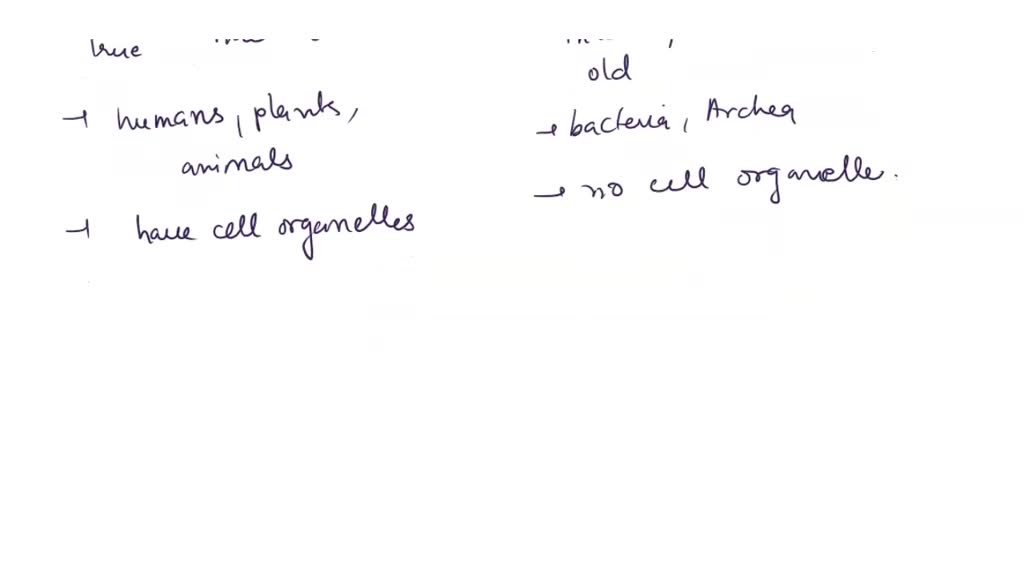 true
→ humans, plants,
animals
→ have cell organelles
old
→ bacteria, Archea
→ no cell organelle.